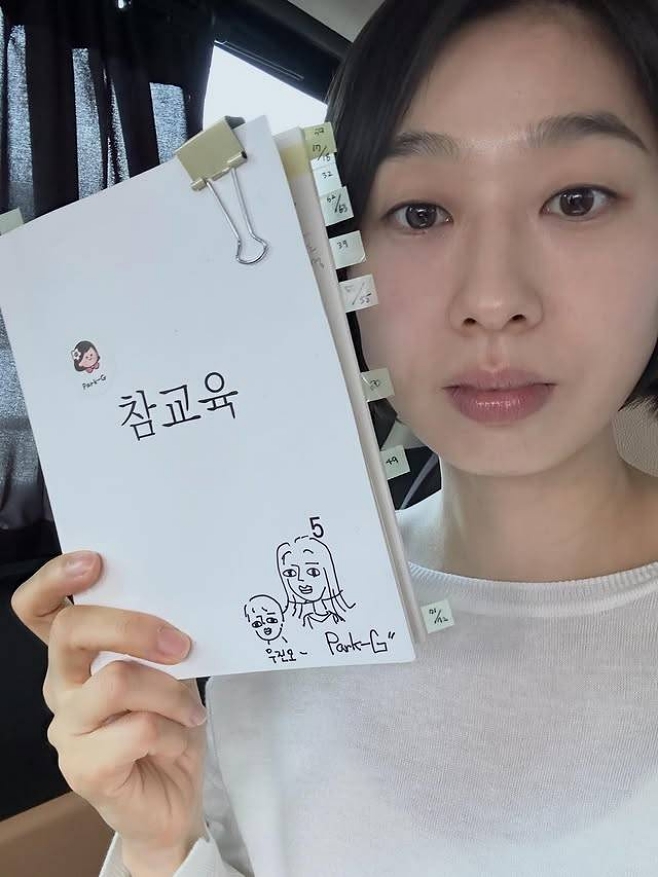 Park-G
참교육
5
우진오~
Park-G"
32
39
49